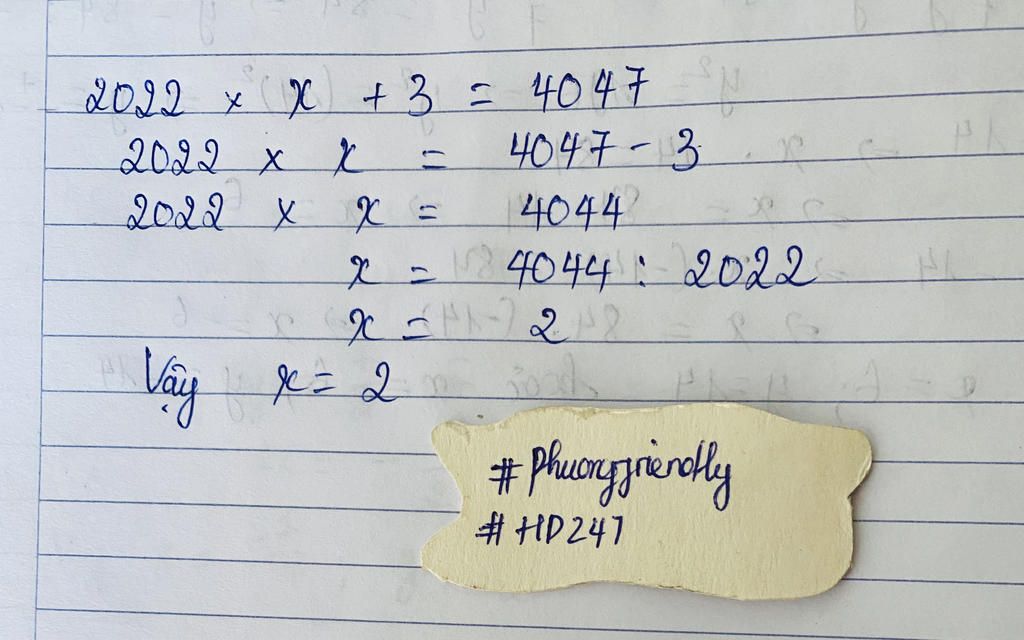 2022 × x + 3 = 4047
2022 × x = 4047 - 3
2022 × x = 4044
x = 4044 : 2022
x = 2
Vậy x = 2
#Phuongfriendly
#HD247